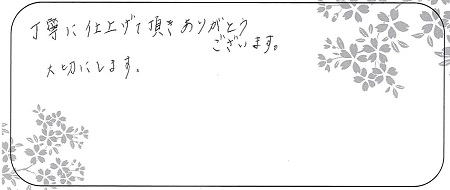 丁寧に仕上げて頂きありがとう
ございます。
大切にします。